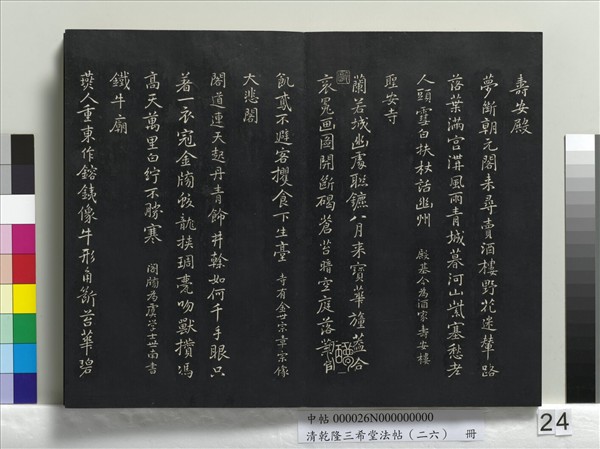 壽安殿
夢斷朝元閣来尋賣酒樓野花迷輦路
落葉滿宮溝風雨青城暮河山紫塞愁老
人頭雪白扶杖話幽州 殿基今為酒家壽安樓
聖安寺
蘭若城幽處聯鑣八月来寶華幢蓋合
衮冕画圖開斷碣蒼苔暗空庭落葉
飢烏不避客攫食下生臺 寺有金世宗章宗像
大悲閣
閣道連天起丹青飾井榦如何千手眼只
著一衣冠金牓蛟龍挾琱甍吻獸攢馮
高天萬里白紵不勝寒 閣牓為虞學士世南書
鐵牛廟
燕人重東作鎔銕像牛形角斷苔華碧
中帖 000026N000000000
清乾隆三希堂法帖(二六) 冊
24